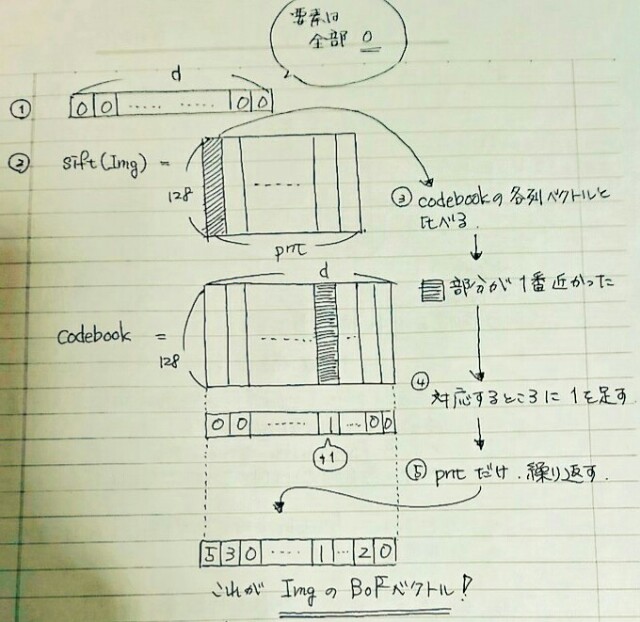 要素は
全部 0
d
① 0 0 ..... ..... 0 0
② sift(Img) =
128
pnt
③ codebookの各列ベクトルと
比べる.
d
部分が1番近かった
codebook =
128
④ 対応するところに1を足す
0 0 ...... 1 ... 0 0
+1
⑤ pntだけ.繰り返す.
5 3 0 ..... 1 ... 2 0
これが ImgのBoFベクトル!